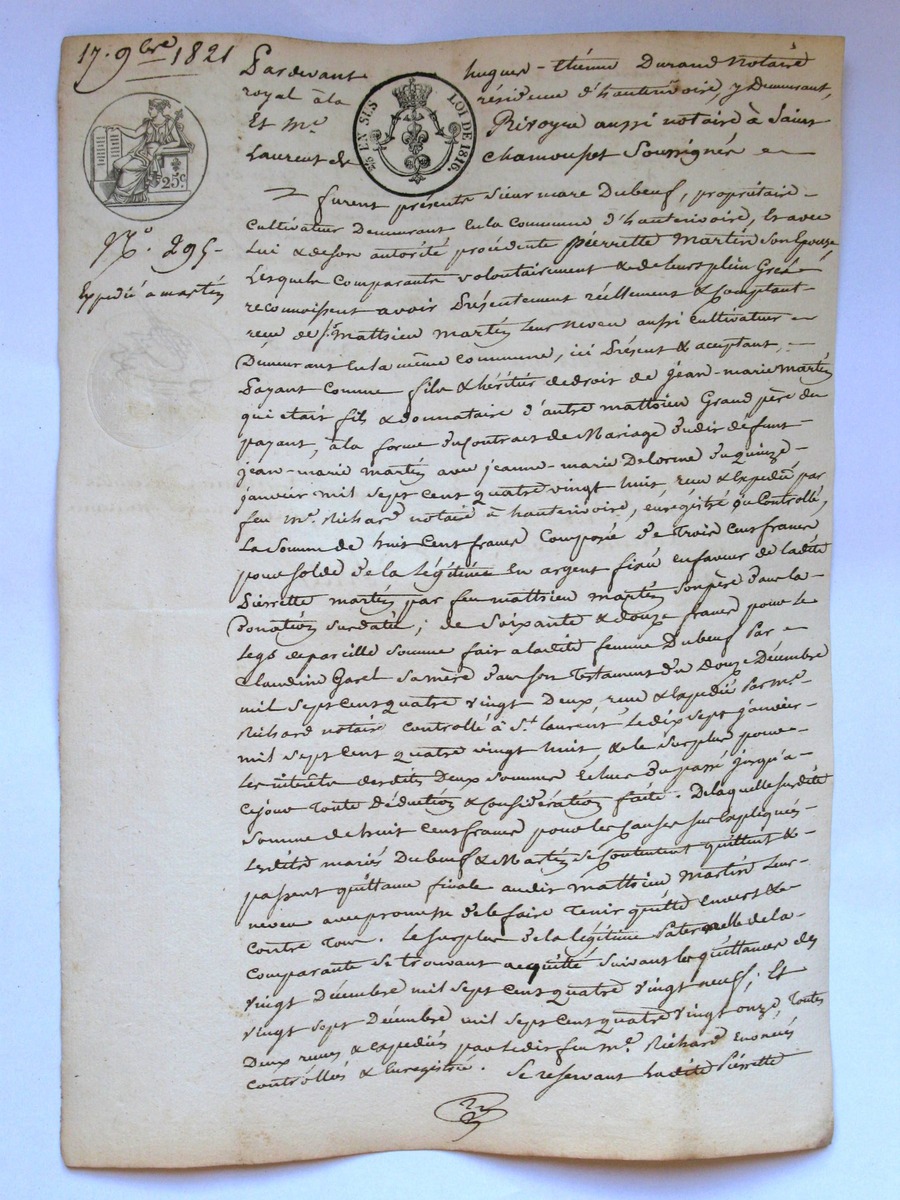 17. 9bre 1821
Pardevant hugues-étienne Durand Notaire
royal à la résidence d'hauterivoire, y Demeurant,
Et Me. Rivoyre aussi notaire à Saint
Laurent de Chamousset Soussignés
25 EN SUS LOI DE 1816.
25c.
No. 295
Expedié a martin
furent présents Sieur marc Dubeuf, propriétaire
Cultivateur Demeurant En la Commune d'hauterivoire, Et avec
Lui & de son autorité procédente pierrette Martin Son Epouse
Lesquels Comparants volontairement & de leurs plein Gré
reconnoissent avoir Présentement réellement & Comptant
reçu de Sr. Mathieu Martin Leur neveu aussi cultivateur
Demeurant En la même commune, ici Présent & acceptant,
Payant Comme fils & héritier de droit de jean-marie Martin
qui était fils & donnataire d'autre mathieu Grand père du
payant, à la forme du Contract de Mariage dudit défunt
jean-marie martin avec jeanne-marie Delorme du quinze
janvier mil sept cent quatre vingt huit, reçu & Expedié par
feu Me. Richard notaire à hauterivoire, enregistré ou Controllé,
La Somme de huit Cent francs Composée de trois Cent francs
pour solde de la légitime En argent fixée en faveur de ladite
Pierrette martin par feu mathieu martin Son père dans la
Donation Susdatée; de Soixante & douze francs pour le
Legs de pareille Somme fait a ladite femme Dubeuf Par
Claudine Garel Sa mère dans Son Testament du Douze Décembre
mil sept Cent quatre vingt Deux, reçu & Expedié Par Me.
Richard notaire controllé à St. Laurent Le dix sept janvier
mil sept Cent quatre vingt huit & de le Surplus pour
Les intérêts desdites Deux Sommes Echus du passé jusqu'a
ce jour toute déduction & Considération faite. De laquelle Susdite
Somme de huit Cent francs pour les Causes sus Expliquées
Lesdits mariés Dubeuf & Martin Se Contentent quittent &
passent quittance finale audit mathieu Martin Leur
neveu avec promesse de le faire Tenir quitte Envers &
Contre Tous. Le Surplus de la légitime Paternelle de la
Comparante Se trouvant acquitté Suivant les quittances des
vingt Décembre mil sept Cent quatre vingt neuf; Et
vingt sept Décembre mil sept Cent quatre vingt onze, Toutes
Deux reçues & Expediées par ledit feu Me. Richard Enoncées
Controllées & Enregistrée. Se reservant Ladite Pierrette